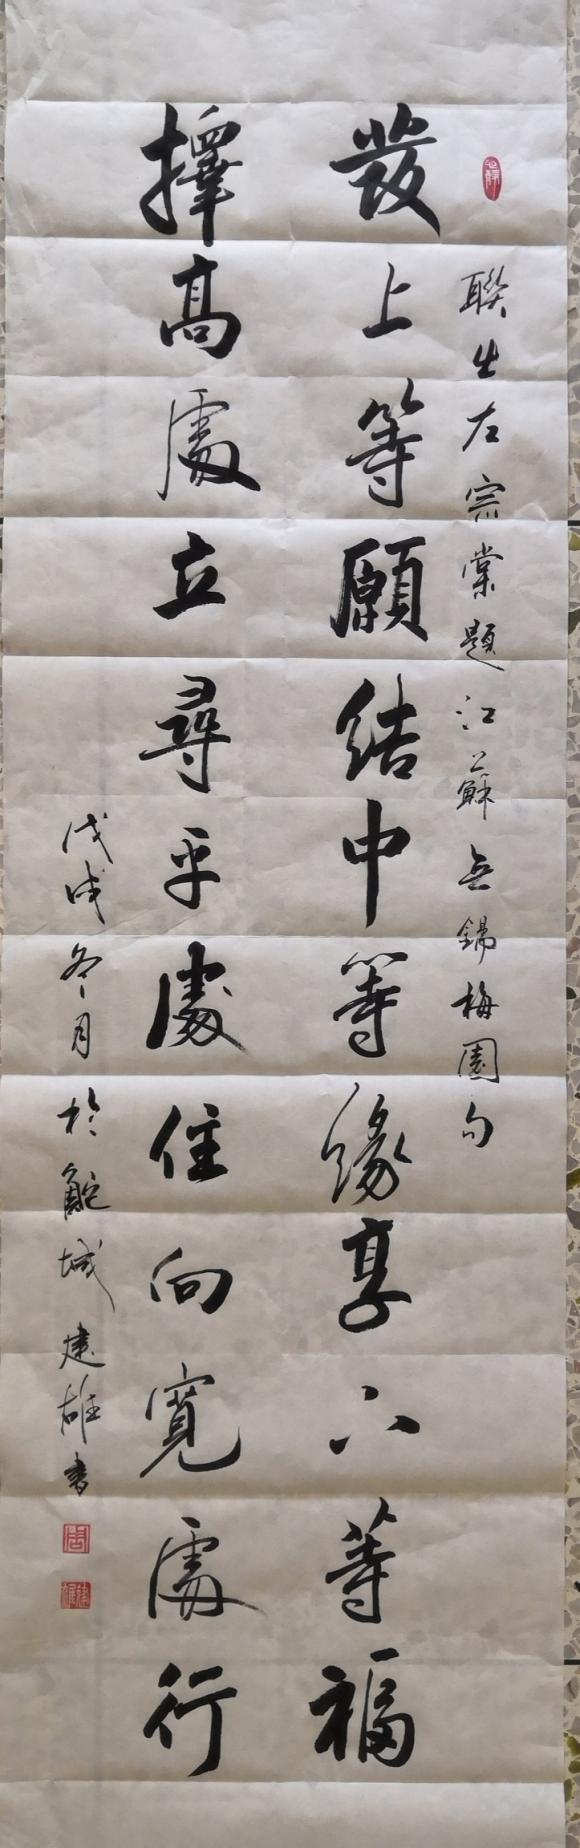 聯出左宗棠題江蘇無錫梅園句
發上等願結中等緣享下等福
擇高處立尋平處住向寬處行
戊戌冬月於鮀城建雄書